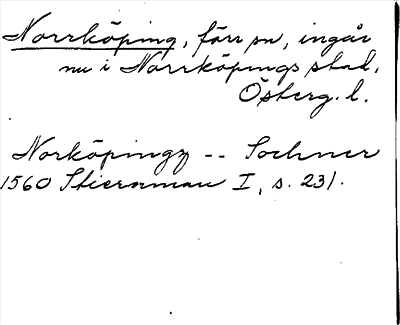 Norrköping, förr sn, ingår
nu i Norrköpings stad,
Österg. l.
Norköpingz -- Sochner
1560 Stiernman I, s. 231.